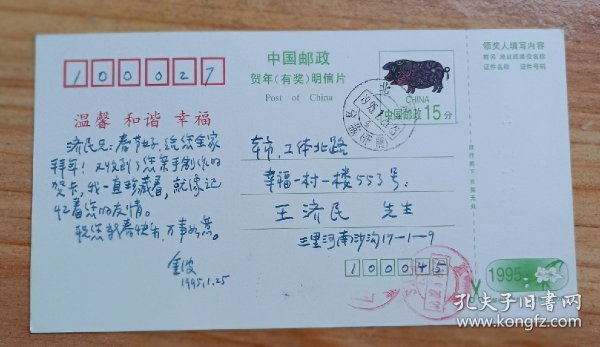 100027
中国邮政
贺年(有奖)明信片
Post of China
CHINA
中国邮政15分
领奖人填写内容
姓名 地址或单位名称
证件名称 证件号码
温馨 和谐 幸福
济民兄:春节好,给您全家
拜年!又收到了您亲手制作的
贺卡,我一直珍藏着,就像记
忆着您的友情。
祝您新春快乐,万事如意。
1995.1.25
本市,工体北路
幸福一村一楼553号:
王济民 先生
三里河南沙沟17-1-9
100045
1995
孔夫子旧书网
www.kongfz.com